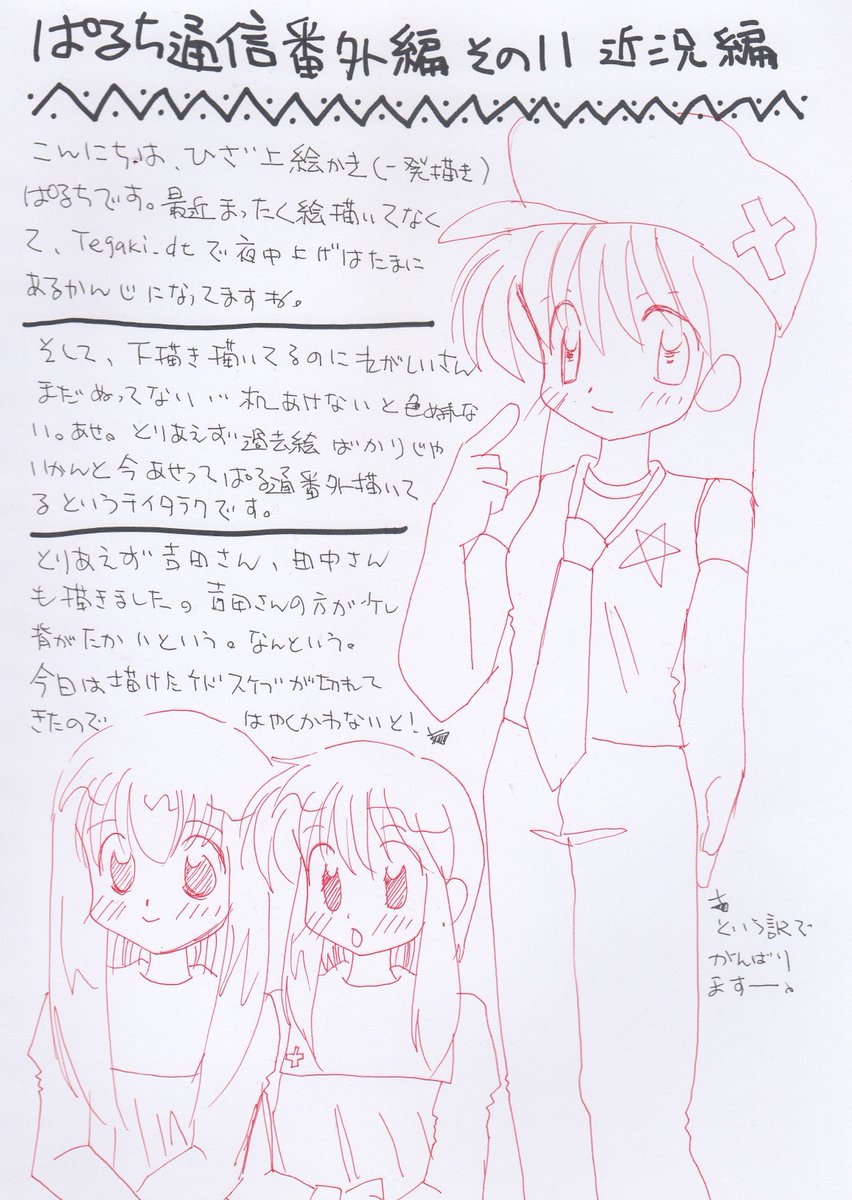 ぱるち通信番外編 その11 近況編
こんにちは、ひざ上絵かき(一発描き)
ぱるちです。最近まったく絵描いてなく
て、Tegaki_dtで夜中上げはたまに
あるかんじになってますね。
そして、下描き描いてるのに
まだぬってない… 机あけないと色ぬれな
い。あせ。とりあえず過去絵ばかりじゃ
いかんと今あせってぱる通番外描いて
るというテイタラクです。
とりあえず吉田さん、田中さん
も描きました。吉田さんの方が少し
背がたかいという。なんという。
今日は描けたけどスケブが切れて
きたので はやくかわないと!
という訳で
がんばり
ますー。